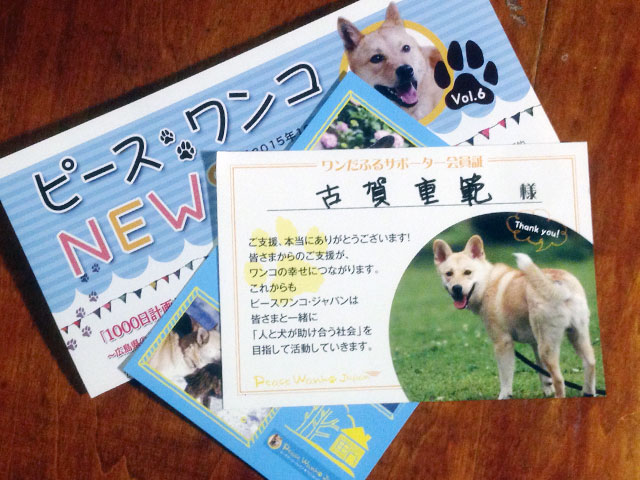 ピース・ワンコ
Vol.6
2015年1
NEW
『1000日計画
〜広島県の
ワンだふるサポーター会員証
古賀重範 様
Thank you!
ご支援、本当にありがとうございます!
皆さまからのご支援が、
ワンコの幸せにつながります。
これからも
ピースワンコ・ジャパンは
皆さまと一緒に
「人と犬が助け合う社会」を
目指して活動していきます。
Peace Wanko Japan
Peace Wanko